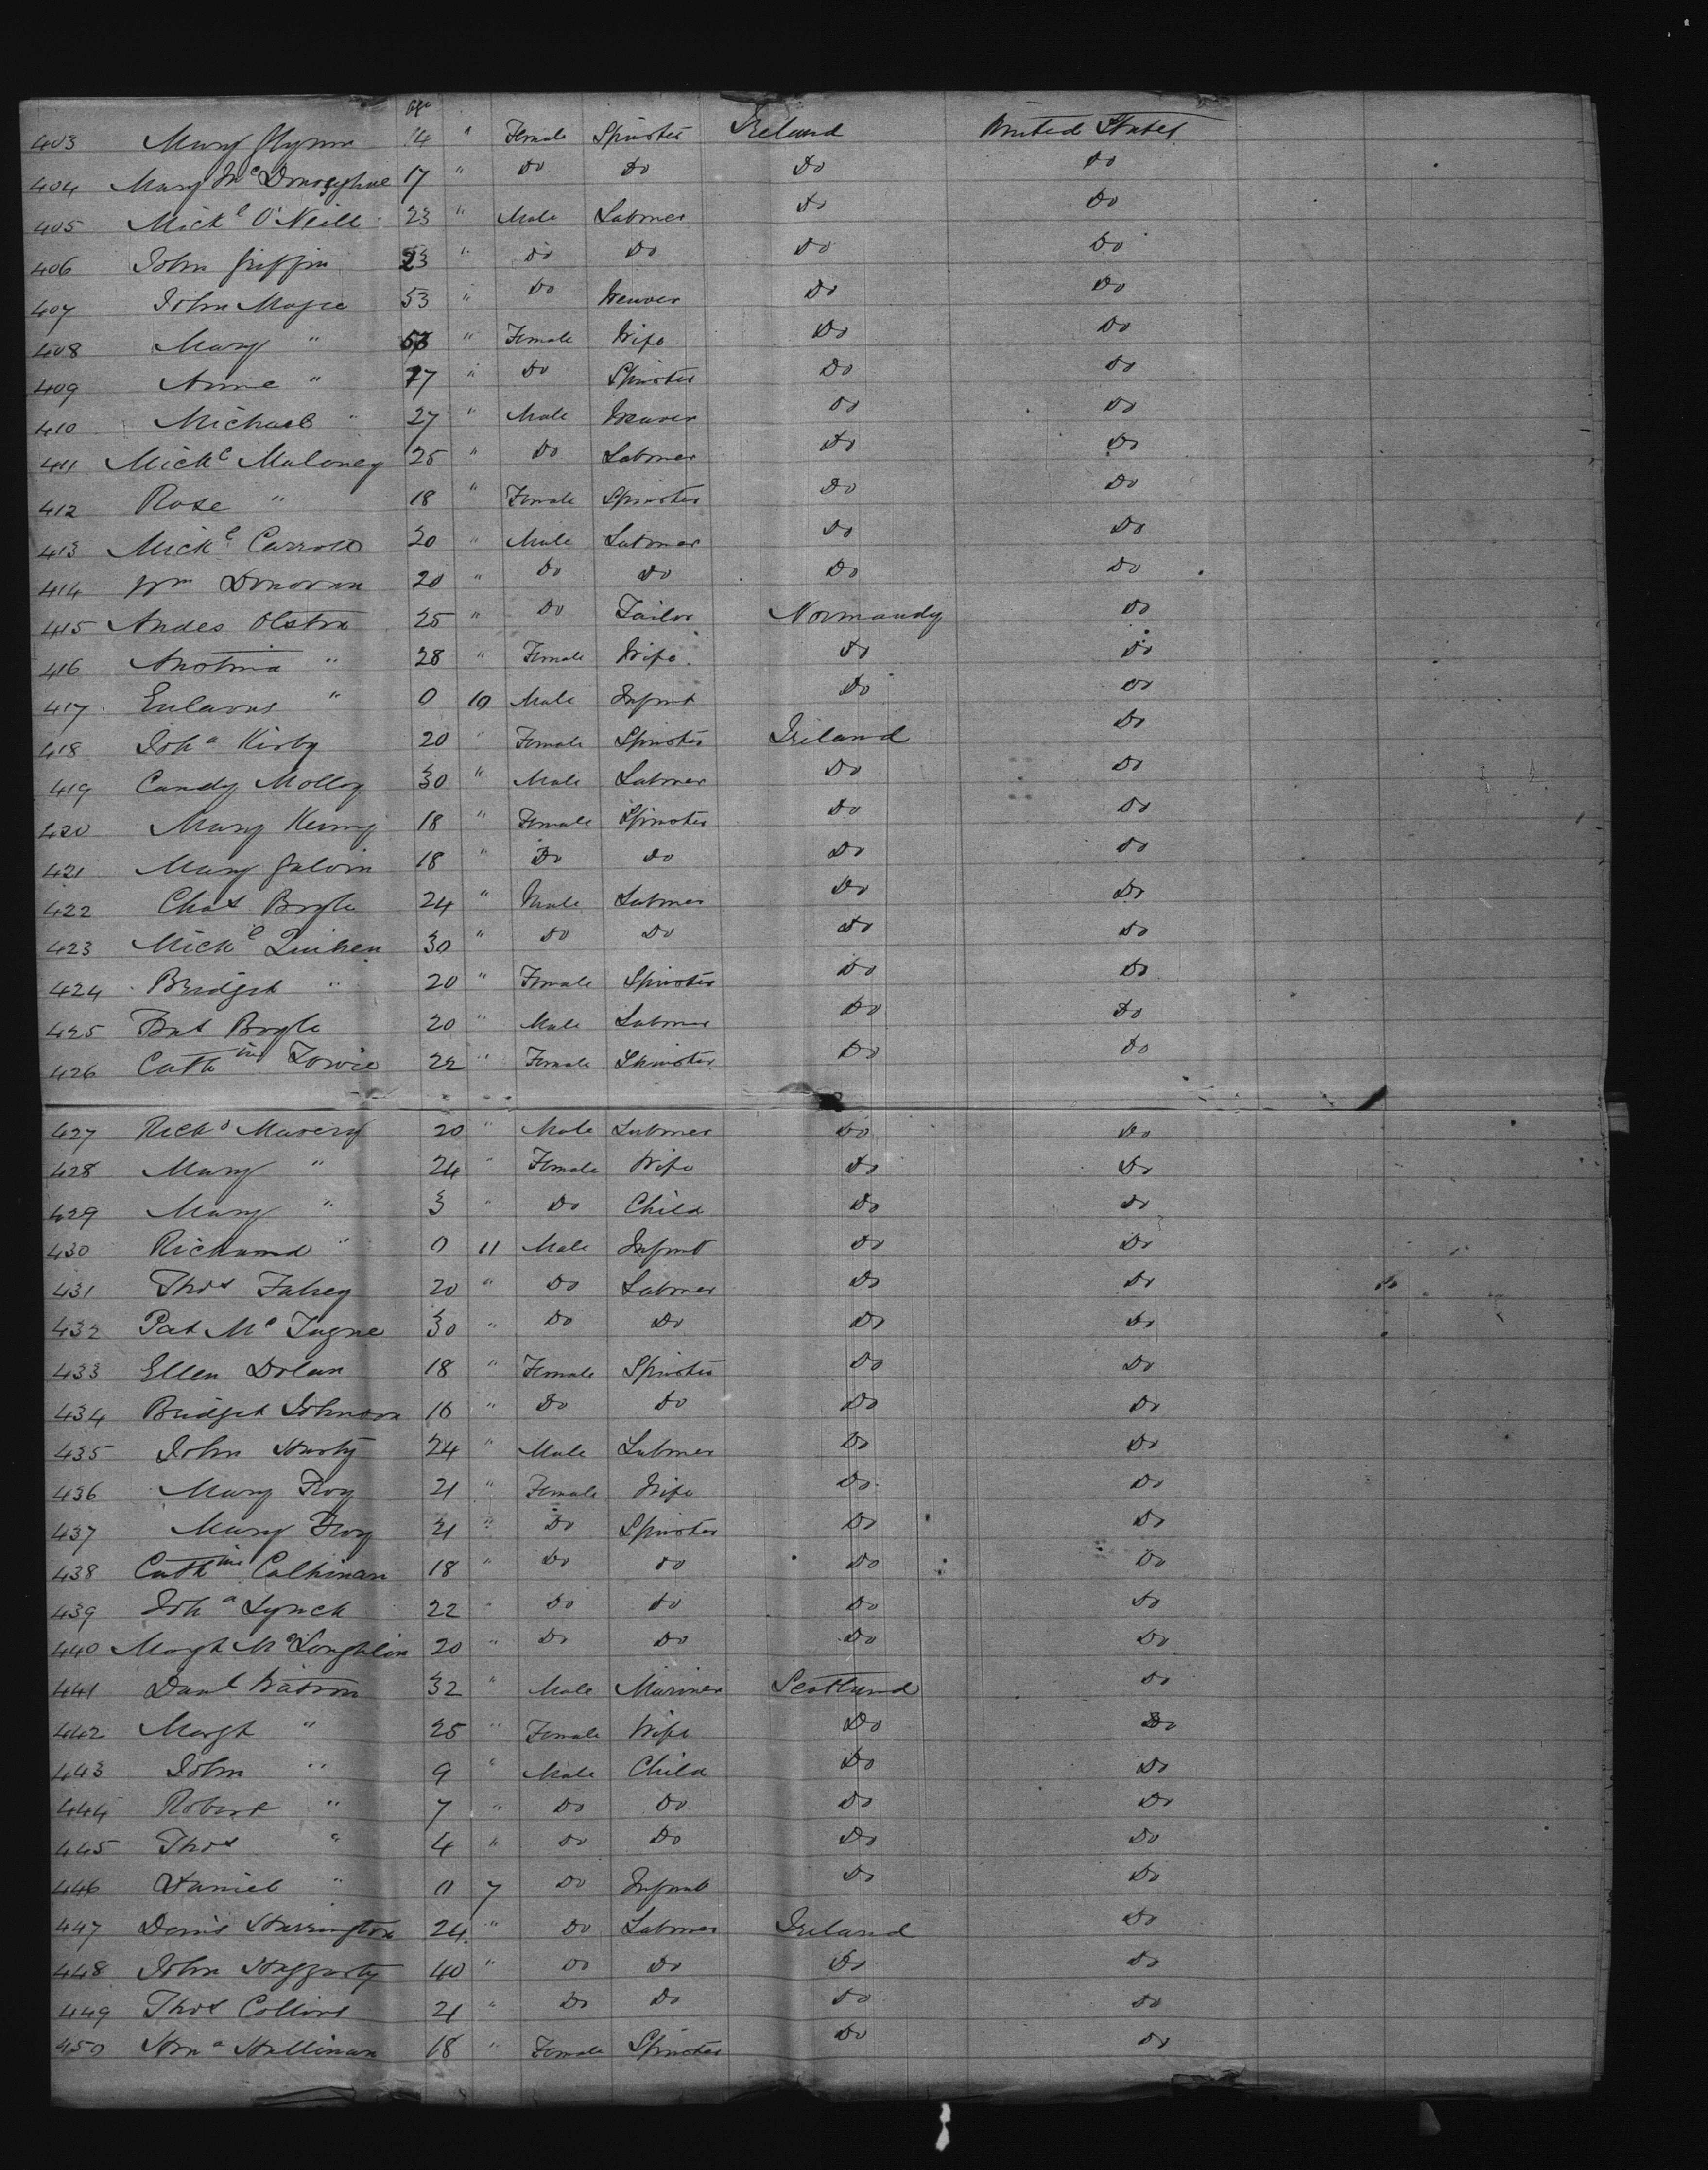 Age
403 Mary Glynn 14 " Female Spinster Ireland United States
404 Mary McDonoghue 17 " Do Do Do Do
405 Mickl O'Neill 23 " Male Labourer Do Do
406 John Griffin 23 " Do Do Do Do
407 John Magee 53 " Do Weaver Do Do
408 Mary " " Female Wife Do Do
409 Anne " 17 " Do Spinster Do Do
410 Michael " 27 " Male Weaver Do Do
411 Mickl Maloney 25 " Do Labourer Do Do
412 Rose " 18 " Female Spinster Do Do
413 Mickl Carroll 20 " Male Labourer Do Do
414 Wm Donovan 20 " Do Do Do Do
415 Andes Olston 25 " Do Tailor Normandy Do
416 " 28 " Female Wife Do Do
417 " 0 10 Male Infant Do Do
418 Joha Kirby 20 " Female Spinster Ireland Do
419 Candy Molloy 30 " Male Labourer Do Do
420 Mary Kenny 18 " Female Spinster Do Do
421 Mary Galvin 18 " Do Do Do Do
422 Chas Boyle 24 " Male Labourer Do Do
423 Mickl 30 " Do Do Do Do
424 Bridget " 20 " Female Spinster Do Do
425 Pat Boyle 20 " Male Labourer Do Do
426 Cathine 22 " Female Spinster Do Do
427 Richd 20 " Male Labourer Do Do
428 Mary " 24 " Female Wife Do Do
429 Mary " 3 " Do Child Do Do
430 Richard " 0 11 Male Infant Do Do
431 Thos Fahey 20 " Do Labourer Do Do
432 Pat Mc Tagne 30 " Do Do Do Do
433 Ellen Dolan 18 " Female Spinster Do Do
434 Bridget Johnson 16 " Do Do Do Do
435 John Harty 24 " Male Labourer Do Do
436 Mary Foy 21 " Female Wife Do Do
437 Mary Foy 21 " Do Spinster Do Do
438 Cathine Calhinan 18 " Do Do Do Do
439 Joha Lynch 22 " Do Do Do Do
440 Margt McLoughlin 20 " Do Do Do Do
441 Danl Watson 32 " Male Mariner Scotland Do
442 Margt " 25 " Female Wife Do Do
443 John " 9 " Male Child Do Do
444 Robert " 7 " Do Do Do Do
445 Thos " 4 " Do Do Do Do
446 Daniel " 0 7 Do Infant Do Do
447 Denis Harrington 24 " Do Labourer Ireland Do
448 John Haggarty 40 " Do Do Do Do
449 Thos Collins 21 " Do Do Do Do
450 Hona Hallinan 18 " Female Spinster Do Do